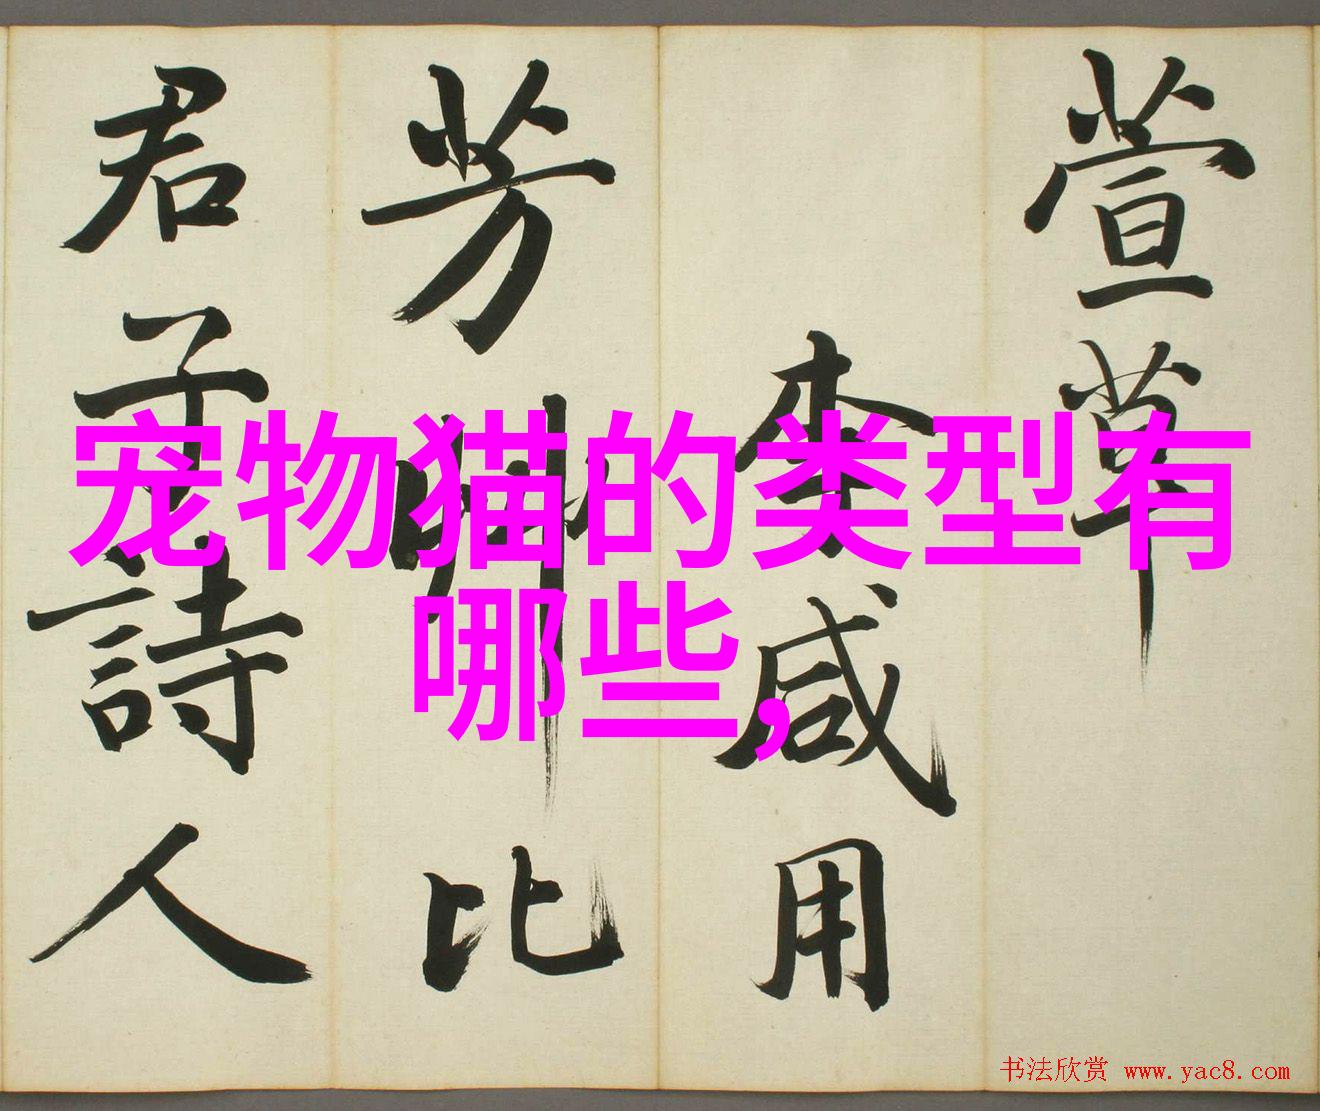 萱草
李咸用
芳草比
君子詩人
宠物猫的类型有
哪些,
书法欣赏 www.yac8.com